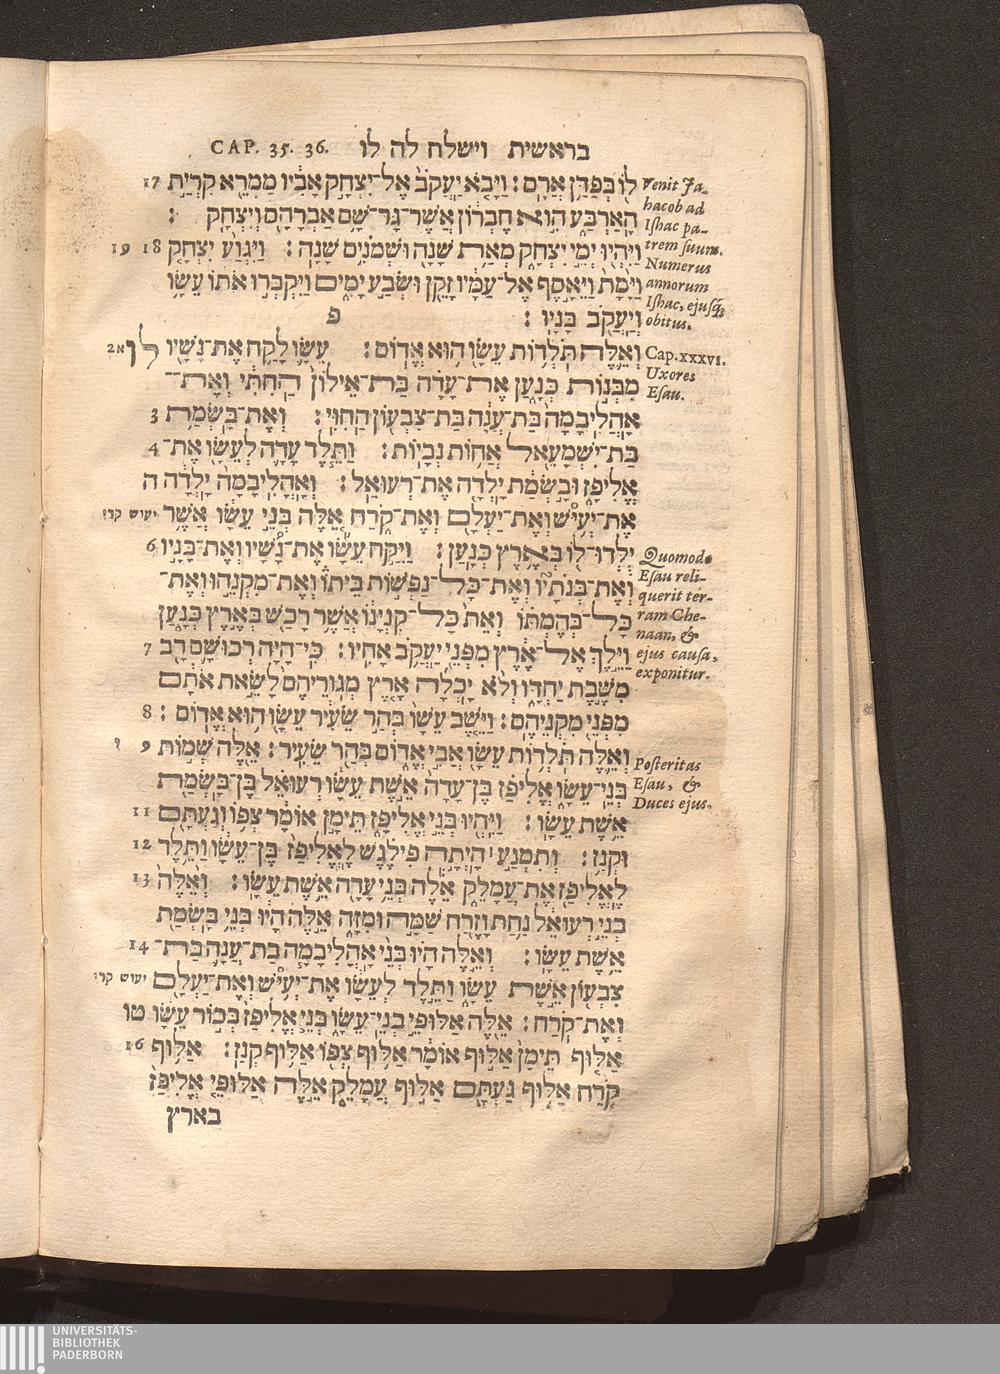 בראשית וישלח לה לו CAP. 35. 36.
לוֹ בְּפַדַּן אֲרָם׃ וַיָּבֹא יַעֲקֹב אֶל־יִצְחָק אָבִיו מַמְרֵא קִרְיַת 17
הָאַרְבַּע הִוא חֶבְרוֹן אֲשֶׁר־גָּר־שָׁם אַבְרָהָם וְיִצְחָק׃
וַיִּהְיוּ יְמֵי יִצְחָק מְאַת שָׁנָה וּשְׁמֹנִים שָׁנָה׃ וַיִּגְוַע יִצְחָק 18 19
וַיָּמָת וַיֵּאָסֶף אֶל־עַמָּיו זָקֵן וּשְׂבַע יָמִים וַיִּקְבְּרוּ אֹתוֹ עֵשָׂו
וְיַעֲקֹב בָּנָיו׃
פ
וְאֵלֶּה תֹּלְדוֹת עֵשָׂו הוּא אֱדוֹם׃ עֵשָׂו לָקַח אֶת־נָשָׁיו לו א 2
מִבְּנוֹת כְּנָעַן אֶת־עָדָה בַּת־אֵילוֹן הַחִתִּי וְאֶת־
אָהֳלִיבָמָה בַּת־עֲנָה בַּת־צִבְעוֹן הַחִוִּי׃ וְאֶת־בָּשְׂמַת 3
בַּת־יִשְׁמָעֵאל אֲחוֹת נְבָיוֹת׃ וַתֵּלֶד עָדָה לְעֵשָׂו אֶת־ 4
אֱלִיפָז וּבָשְׂמַת יָלְדָה אֶת־רְעוּאֵל׃ וְאָהֳלִיבָמָה יָלְדָה ה
אֶת־יְעִישׁ וְאֶת־יַעְלָם וְאֶת־קֹרַח אֵלֶּה בְּנֵי עֵשָׂו אֲשֶׁר יעוש קרי
יֻלְּדוּ־לוֹ בְּאֶרֶץ כְּנָעַן׃ וַיִּקַּח עֵשָׂו אֶת־נָשָׁיו וְאֶת־בָּנָיו 6
וְאֶת־בְּנֹתָיו וְאֶת־כָּל־נַפְשׁוֹת בֵּיתוֹ וְאֶת־מִקְנֵהוּ וְאֶת־
כָּל־בְּהֶמְתּוֹ וְאֵת כָּל־קִנְיָנוֹ אֲשֶׁר רָכַשׁ בְּאֶרֶץ כְּנָעַן
וַיֵּלֶךְ אֶל־אֶרֶץ מִפְּנֵי יַעֲקֹב אָחִיו׃ כִּי־הָיָה רְכוּשָׁם רָב 7
מִשֶּׁבֶת יַחְדָּו וְלֹא יָכְלָה אֶרֶץ מְגוּרֵיהֶם לָשֵׂאת אֹתָם
מִפְּנֵי מִקְנֵיהֶם׃ וַיֵּשֶׁב עֵשָׂו בְּהַר שֵׂעִיר עֵשָׂו הוּא אֱדוֹם׃ 8
וְאֵלֶּה תֹּלְדוֹת עֵשָׂו אֲבִי אֱדוֹם בְּהַר שֵׂעִיר׃ אֵלֶּה שְׁמוֹת 9 י
בְּנֵי־עֵשָׂו אֱלִיפַז בֶּן־עָדָה אֵשֶׁת עֵשָׂו רְעוּאֵל בֶּן־בָּשְׂמַת
אֵשֶׁת עֵשָׂו׃ וַיִּהְיוּ בְּנֵי אֱלִיפָז תֵּימָן אוֹמָר צְפוֹ וְגַעְתָּם 11
וּקְנַז׃ וְתִמְנַע׀ הָיְתָה פִילֶגֶשׁ לֶאֱלִיפַז בֶּן־עֵשָׂו וַתֵּלֶד 12
לֶאֱלִיפַז אֶת־עֲמָלֵק אֵלֶּה בְּנֵי עָדָה אֵשֶׁת עֵשָׂו׃ וְאֵלֶּה 13
בְּנֵי רְעוּאֵל נַחַת וָזֶרַח שַׁמָּה וּמִזָּה אֵלֶּה הָיוּ בְּנֵי בָשְׂמַת
אֵשֶׁת עֵשָׂו׃ וְאֵלֶּה הָיוּ בְּנֵי אָהֳלִיבָמָה בַת־עֲנָה בַּת־ 14
צִבְעוֹן אֵשֶׁת עֵשָׂו וַתֵּלֶד לְעֵשָׂו אֶת־יְעִישׁ וְאֶת־יַעְלָם יעוש קרי
וְאֶת־קֹרַח׃ אֵלֶּה אַלּוּפֵי בְנֵי־עֵשָׂו בְּנֵי אֱלִיפַז בְּכוֹר עֵשָׂו טו
אַלּוּף תֵּימָן אַלּוּף אוֹמָר אַלּוּף צְפוֹ אַלּוּף קְנַז׃ אַלּוּף 16
קֹרַח אַלּוּף גַּעְתָּם אַלּוּף עֲמָלֵק אֵלֶּה אַלּוּפֵי אֱלִיפַז
בארץ
Venit Ja-
hacob ad
Ishac pa-
trem suum.
Numerus
annorum
Ishac, ejusq;
obitus.
Cap. xxxvi.
Uxores
Esau.
Quomodo
Esau reli-
querit ter-
ram Che-
naan, &
ejus causa,
exponitur.
Posteritas
Esau, &
Duces ejus.
UNIVERSITÄTS-
BIBLIOTHEK
PADERBORN